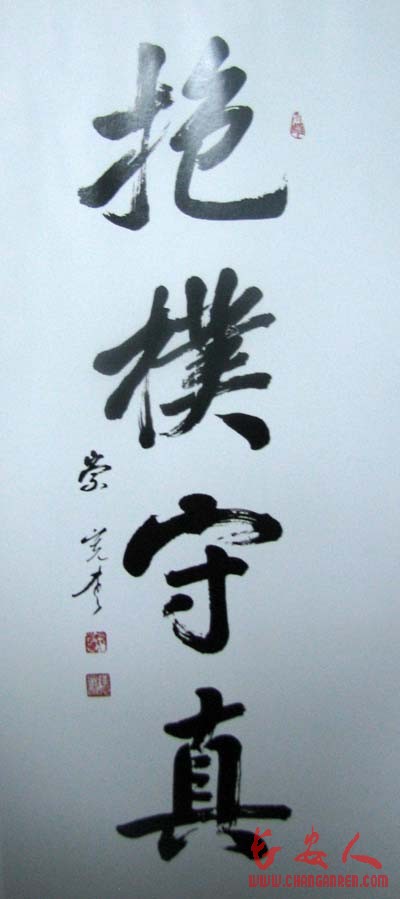 抱樸守真
長安人
WWW.CHANGANREN.COM